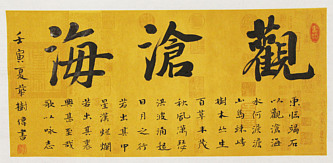 觀滄海
東臨碣石
以觀滄海
水何澹澹
山島竦峙
樹木丛生
百草丰茂
秋風萧瑟
洪波涌起
日月之行
若出其中
星漢燦爛
若出其裏
甚至哉
歌以咏志
壬寅夏華樹傳書